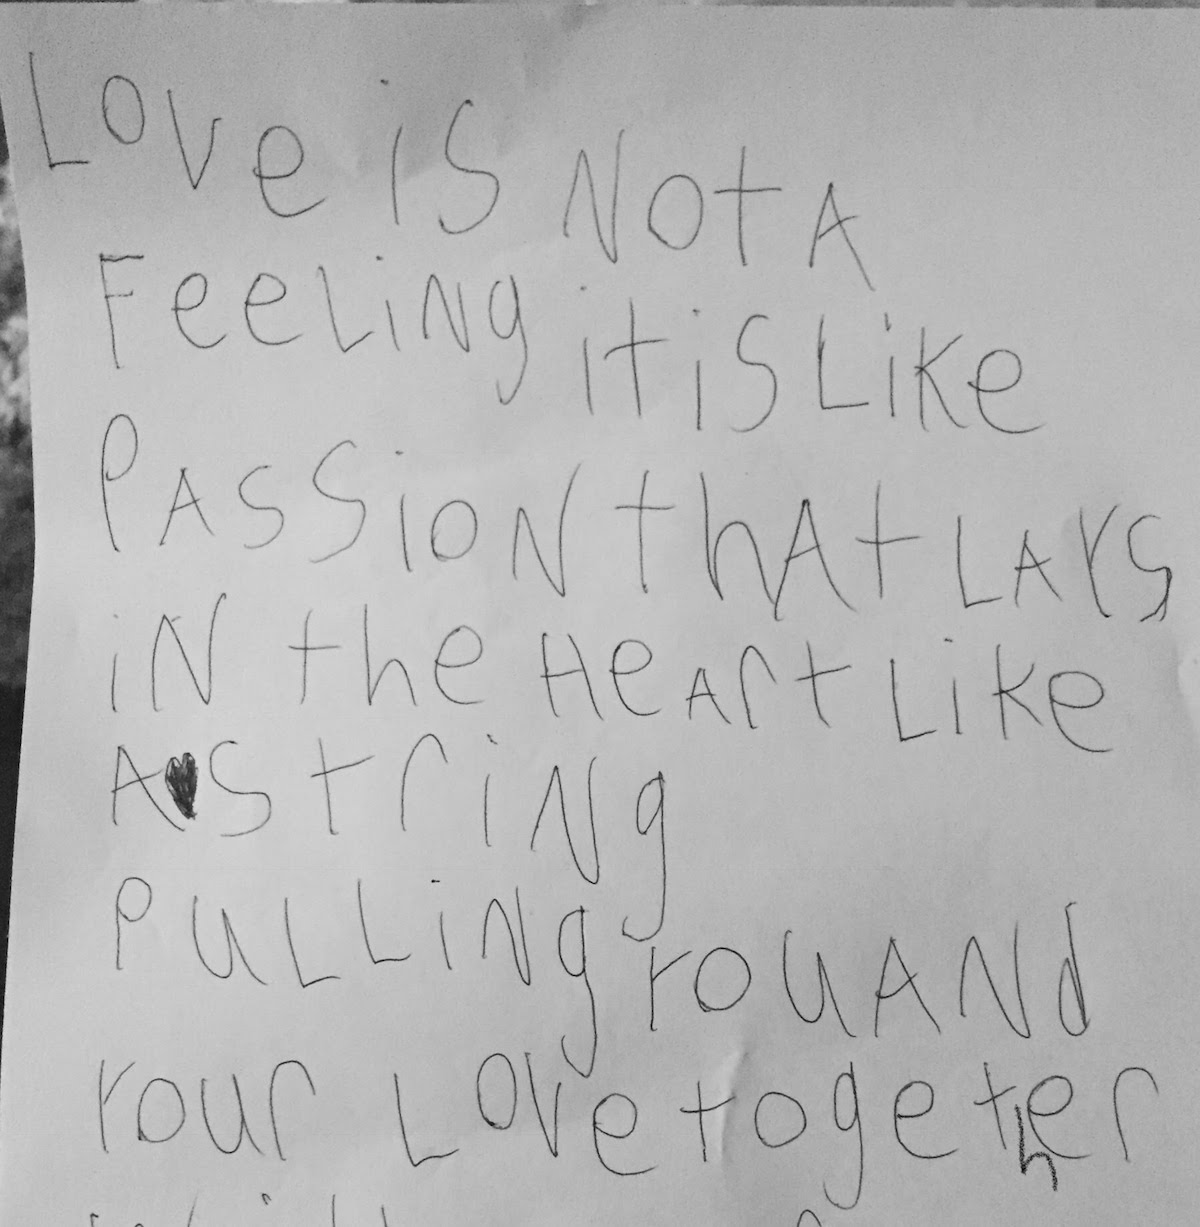 Love is Not A
Feeling it is Like
PAssioN thAt LAYs
iN the HeArt Like
A♥String
PuLLiNg YouANd
Your Love together